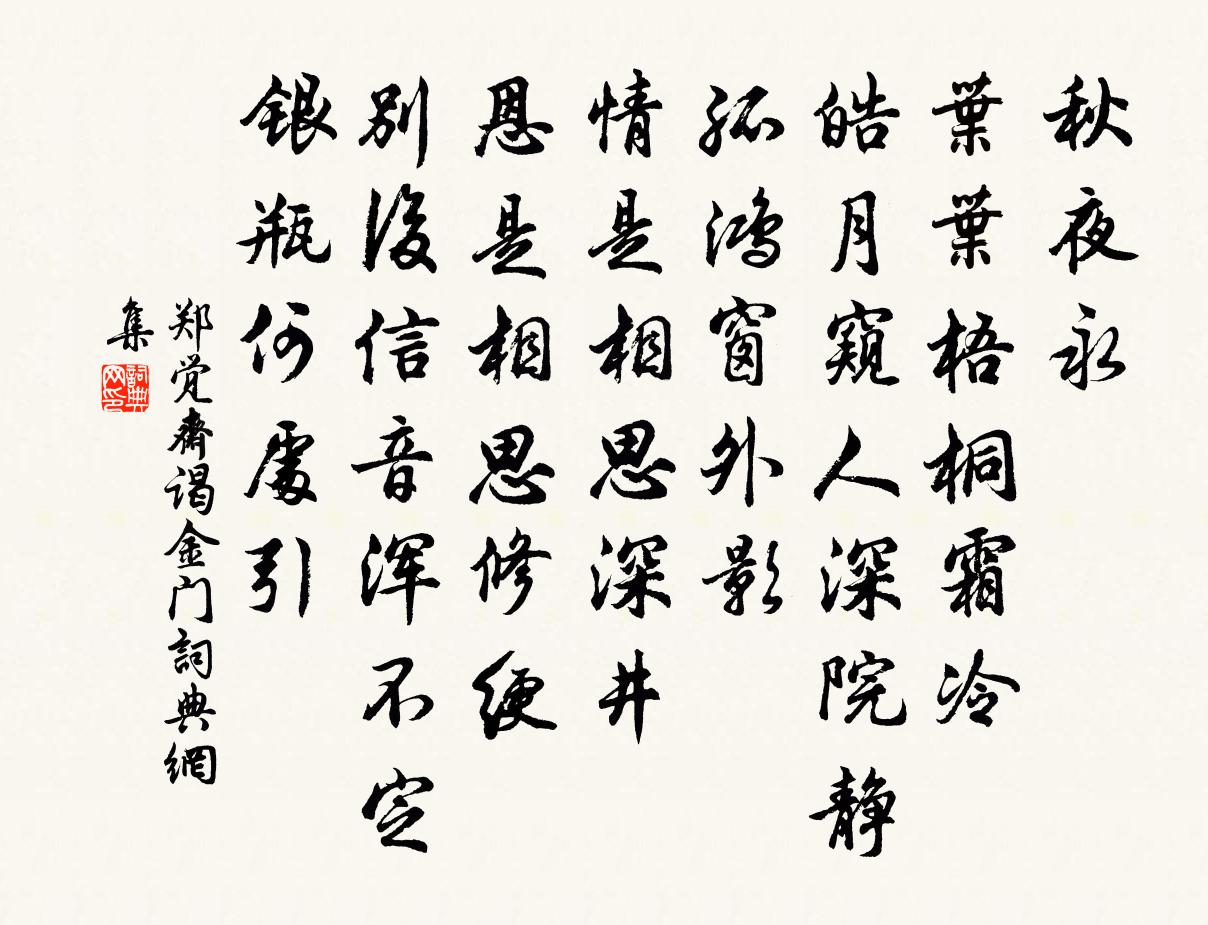 秋夜永
葉葉梧桐霜冷
皓月窺人深院静
孤鸿窗外影
情是相思深井
恩是相思修绠
別後信音浑不定
銀瓶何處引
郑觉齋谒金门詞典網
集
詞典
网印